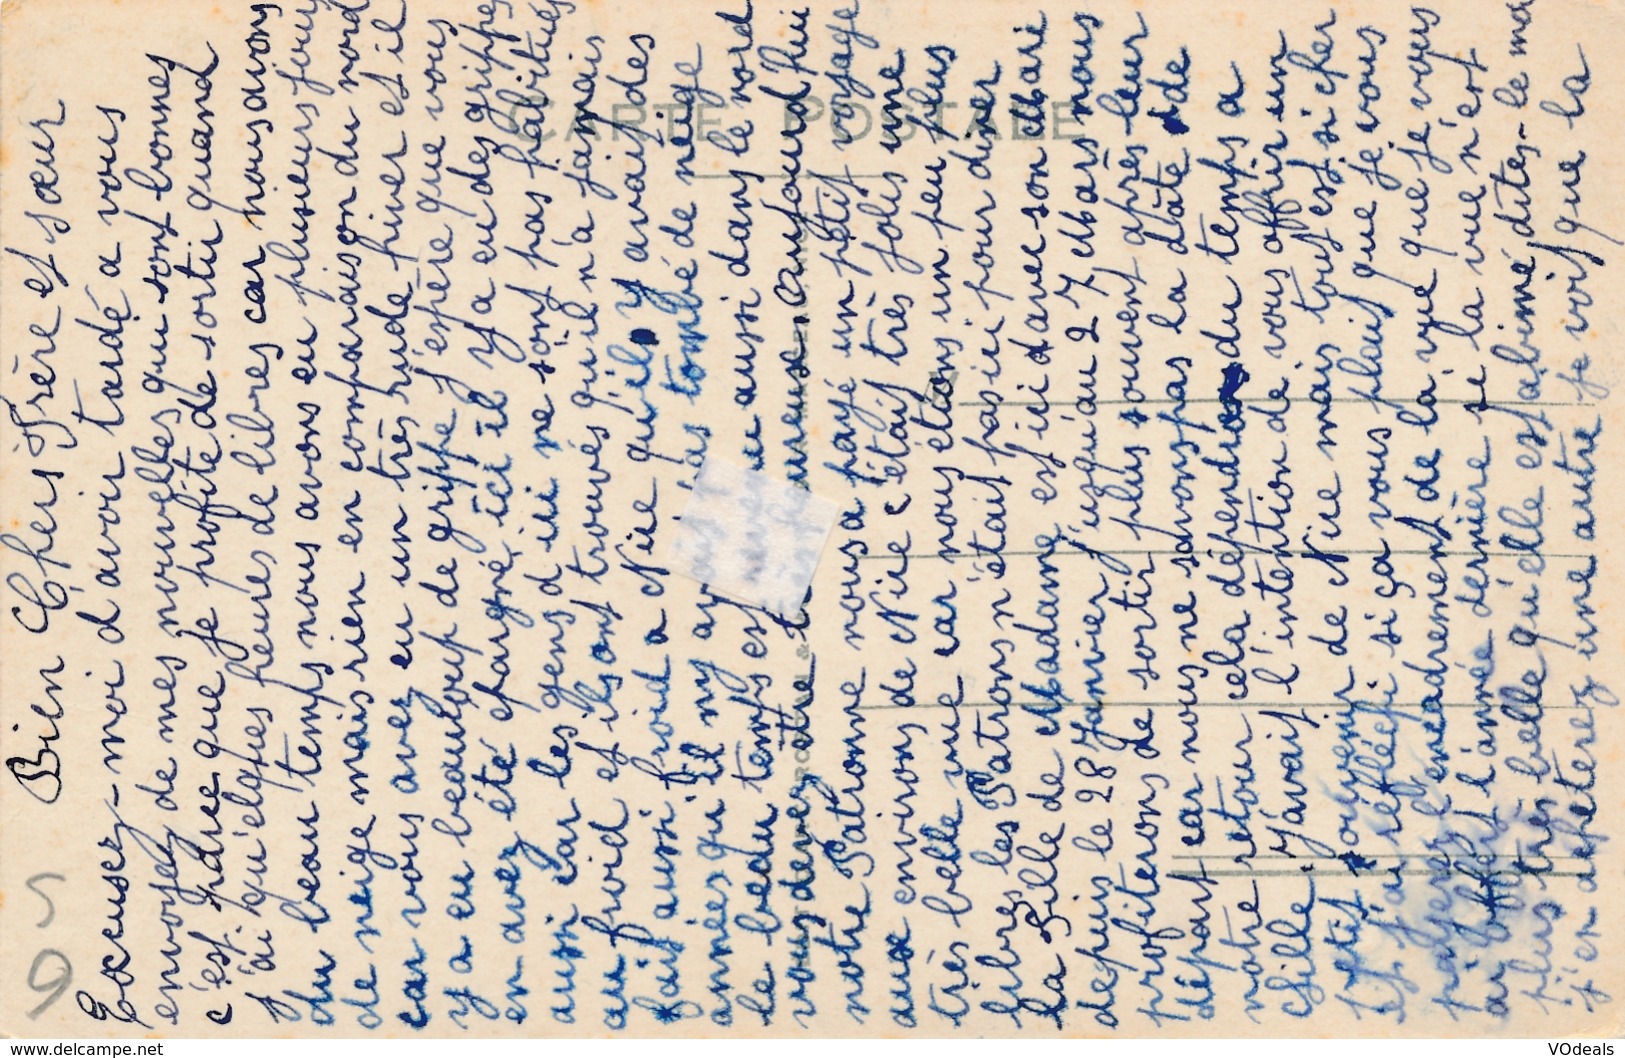 Bien Chers Frère et sœur
Excusez-moi d'avoir tardé a vous
envoyez de mes nouvelles qui sont bonnes
c'est que je profite de sortir quand
j'ai quelques heures de libres car nous avons
du beau temps nous avons eu plusieurs jours
de neige mais rien en comparaison du nord
car vous avez eu un très rude hiver et il
y a eu beaucoup de grippe j'espère que vous
en avez été épargné ici il y a eu des grippes
aussi car les gens d'ici ne sont pas habitués
au froid et ils ont trouvés qu'il n'a jamais
fait aussi froid a Nice qu'il y avait des
années qu'il n'y av as tombé de neige
le beau temps est u aussi dans le nord
vous devez être heureuse. Aujourd'hui
notre Patronne nous a payé un petit voyage
aux environs de Nice c'était très jolis une
très belle vue car nous étions un peu plus
libres les Patrons n'était pas ici pour diner
la Fille de Madame est ici d avec son Mari
depuis le 28 Janvier jusqu'au 27 Mars nous
profiterons de sortir plus souvent après leur
départ car nous ne savons pas la date de
notre retour cela dépendra du temps a
Chille. J'avait l'intention de vous offrir un
petit souvenir de Nice mais tout est si cher
j'ai réfléchi si ça vous plait que je vous
l'encadrement de la vue que je vous
ai offert l'année dernière si la vue n'est
plus très belle qu'elle est abimé dites-le moi
j'en achèterez une autre je vois que la
CARTE POSTALE
95
www.delcampe.net
VOdeals